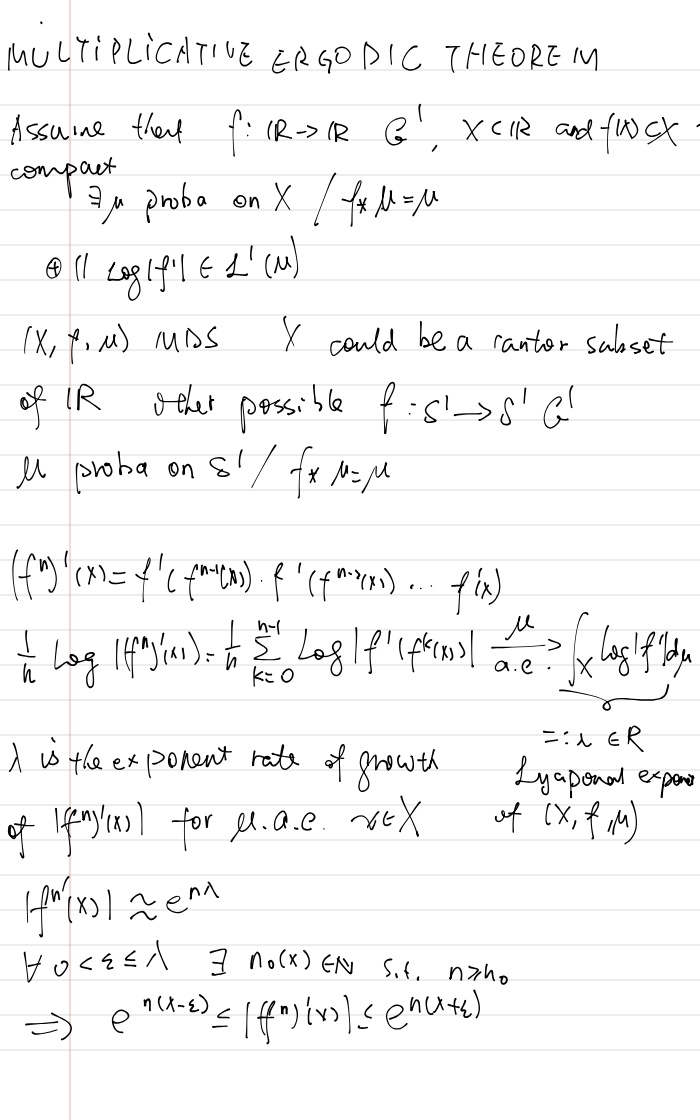 MULTIPLICATIVE ERGODIC THEOREM
Assume that f: ℝ→ℝ C¹, X⊂ℝ and f(X)⊂X
compact
∃μ proba on X / f∗μ=μ
⊕ // Log|f'| ∈ L¹(μ)
(X, f, μ) MDS X could be a cantor subset
of ℝ other possible f: S¹→S¹ C¹
μ proba on S¹ / f∗μ=μ
(fⁿ)'(x) = f'(fⁿ⁻¹(x)) · f'(fⁿ⁻²(x)) ... f'(x)
1/n Log |(fⁿ)'(x)| = 1/n ∑_{k=0}^{n-1} Log |f'(fᵏ(x))| —μ a.e.→ ∫_X Log|f'|dμ
=: λ ∈ R
λ is the exponent rate of growth
Lyaponal expon
of |(fⁿ)'(x)| for μ.a.e. x∈X
of (X, f, μ)
|fⁿ'(x)| ≈ e^{nλ}
∀ 0<ε≤λ ∃ n₀(x)∈ℕ s.t. n≥n₀
⟹ e^{n(λ-ε)} ≤ |(fⁿ)'(x)| ≤ e^{n(λ+ε)}